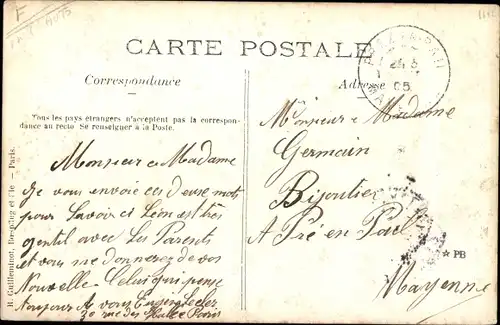 CARTE POSTALE
Correspondance
Tous les pays étrangers n'acceptent pas la correspon-
dance au recto Se renseigner à la Poste.
Monsieur et Madame
Je vous envoie ces deuse mots
pour Savoir ci Léon est très
gentil avec Les Parents
et vous me donnerez de vos
Nouvelle Celui qui pense
toujours à vous
30 rue des Halles Paris
Adresse
Monsieur e Madame
Germain
Bijoutier
A Pré en Pail
Mayenne
PRÉ-EN-PAIL
24 5
05
MAYENNE
★ PB
R. Guilleminot, Bœspflug et Cie — Paris.
F